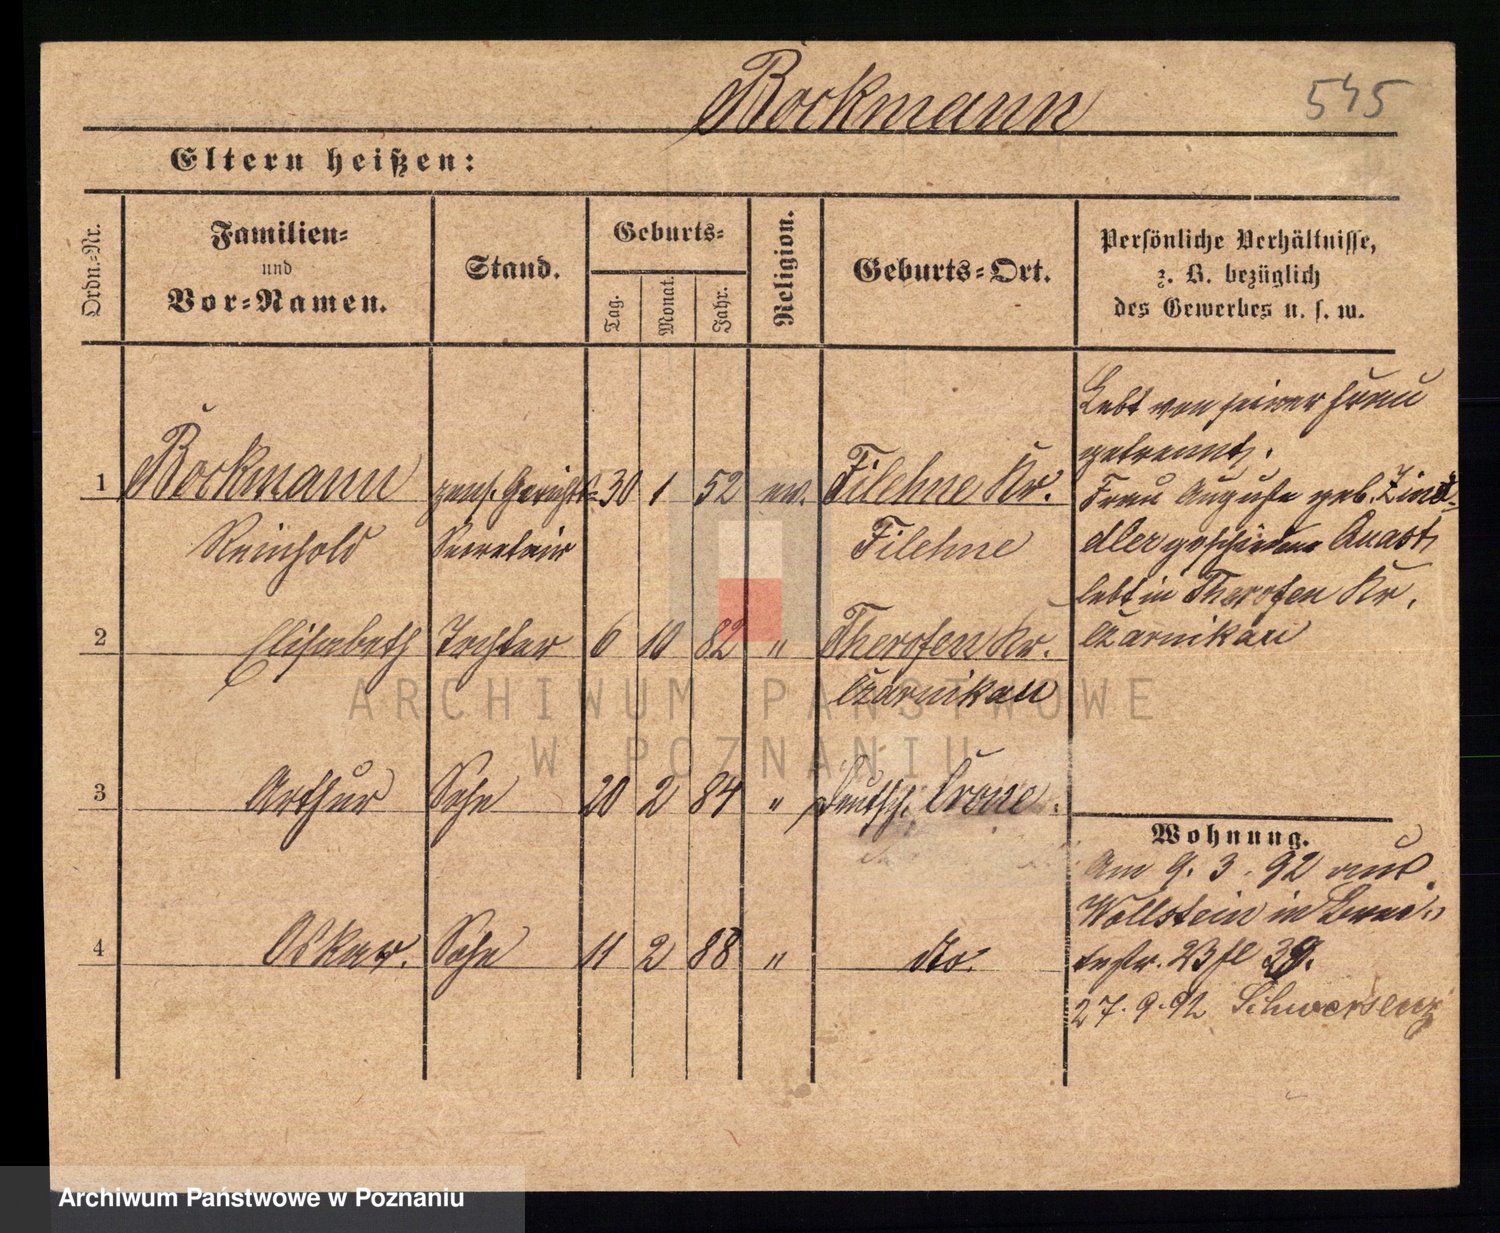 Bockmann
545
Eltern heißen:
Ordn.-Nr.
Familien-
und
Vor-Namen.
Stand.
Geburts-
Tag.
Monat.
Jahr.
Religion.
Geburts-Ort.
Persönliche Verhältnisse,
z. B. bezüglich
des Gewerbes u. s. w.
1 Bockmann pens. Gerichts- 30 1 52 ev. Filehne Kr.
Reinhold Secretair Filehne
2 Elisabeth Tochter 6 10 82 " Kr.
Czarnikau
3 Arthur Sohn 20 2 84 " Deutsch. Crone.
4 Oskar. Sohn 11 2 88 " do.
Lebt von seiner Frau
getrennt.
Frau Auguste geb. Zind-
dler geschiedene
lebt in Kr.
Czarnikau
Wohnung.
Am 9. 3. 92 aus
Wollstein in Brei-
testr. 23 39.
27. 9. 92 Schwersenz
ARCHIWUM PAŃSTWOWE
W POZNANIU
Archiwum Państwowe w Poznaniu